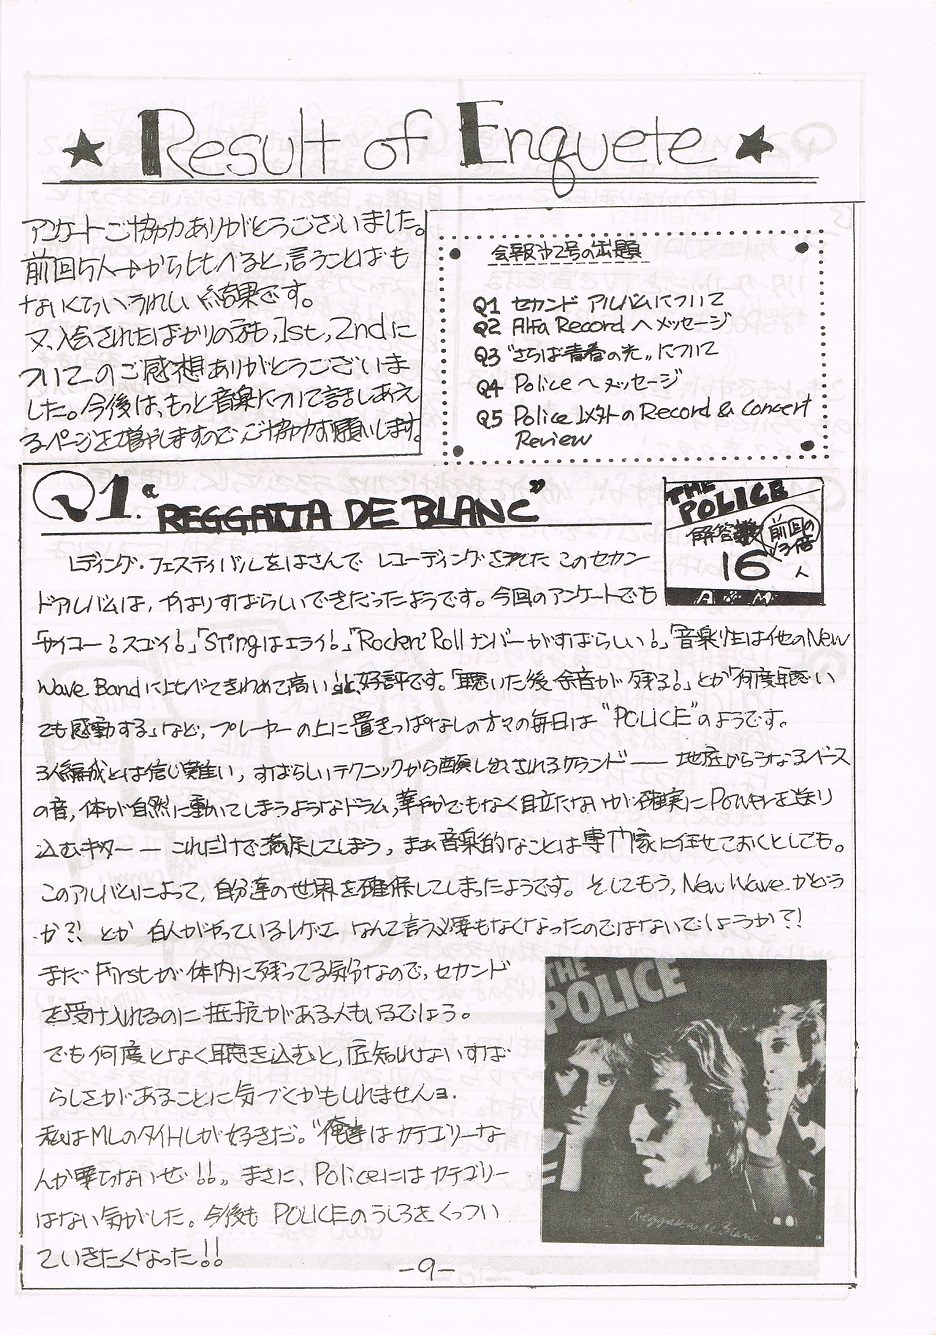 ★ Result of Enquete ★
アンケートご協力ありがとうございました。
前回5人→からくらべると、言うことはも
ないくらいうれしい結果です。
又、入会されたばかりの子も、1st, 2ndに
ついてのご感想ありがとうございま
した。今後は、もっと音楽について話しあえ
るページを増やしますのでご協力お願いします。
会報㐧2号の出題
Q1 セカンド アルバムについて
Q2 Alfa Record へメッセージ
Q3 "さらば青春の光"について
Q4 Policeへメッセージ
Q5 Police以外の Record & Concert
Review
Q1. "REGGATTA DE BLANC"
THE POLICE
解答数
前回の
3倍
16人
A & M
レディング・フェスティバルをはさんで レコーディングされた このセカン
ドアルバムは、やはりすばらしいできだったようです。今回のアンケートでも
「サイコー!スゴイ!」「Stingはエライ!」「Rock'n' Rollナンバーがすばらしい!」「音楽性は他のNew
Wave Bandに比べてきわめて高い」と、好評です。「聴いた後 余音が残る!」とか「何度聴い
ても感動する」など、プレーヤーの上に置きっぱなしの方々の毎日は "POLICE"のようです。
3人編成とは信じ難い、すばらしいテクニックから醸し出されるサウンド── 地底からうなるベース
の音、体が自然に動いてしまうようなドラム、華やかでもなく目立たないが確実にPowerを送り
込むギター ── これだけで満足してしまう、まぁ音楽的なことは専門家に任せておくとしても。
このアルバムによって、自分達の世界を確保してしまったようです。そしてもう、New Waveかどう
か?! とか 白人がやっているレゲエ、なんて言う必要もなくなったのではないでしょうか?!
まだ Firstが体内に残ってる気分なので、セカンド
を受け入れるのに抵抗がある人もいるでしょう。
でも何度となく聴き込むと、底知れないすば
らしさがあることに気づくかもしれませんョ.
私はMLのタイトルが好きだ。"俺達はカテゴリーな
んか要らないぜ!!" まさに、Policeにはカテゴリー
はない気がした。今後も POLICEのうしろをくっつい
ていきたくなった!!
THE
POLICE
Reggatta de Blanc
－9－